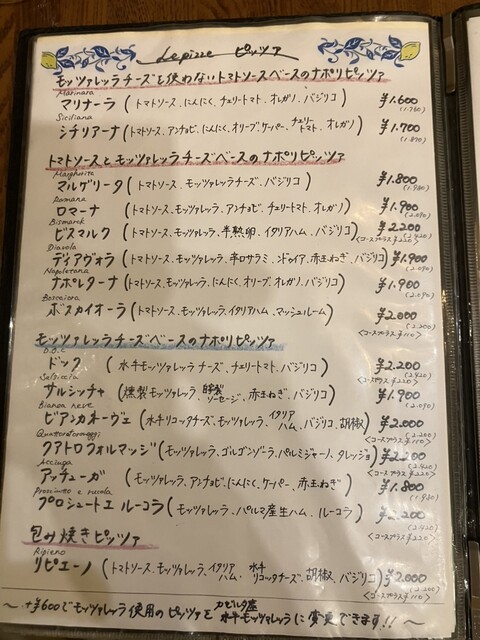 Le pizze ピッツァ
モッツァレッラチーズを使わないトマトソースベースのナポリピッツァ
Marinara
マリナーラ (トマトソース、にんにく、チェリートマト、オレガノ、バジリコ) ¥1.600
(1.760)
Siciliana
シチリアーナ (トマトソース、アンチョビ、にんにく、オリーブ、ケーパー、チェリートマト、オレガノ) ¥1.700
(1.870)
トマトソースとモッツァレッラチーズベースのナポリピッツァ
Margherita
マルゲリータ (トマトソース、モッツァレラチーズ、バジリコ) ¥1.800
(1.980)
Romana
ロマーナ (トマトソース、モッツァレッラ、アンチョビ、チェリートマト、オレガノ) ¥1.900
(2.090)
Bismarck
ビスマルク (トマトソース、モッツァレラ、半熟卵、イタリアハム、バジリコ) ¥2.200
(2.420)
<コースプラス ¥220>
Diavola
ディアヴォラ (トマトソース、モッツァレラ、辛口サラミ、ンドゥイア、赤玉ねぎ、バジリコ) ¥1.900
(2.090)
Napoletana
ナポレターナ (トマトソース、モッツァレラ、にんにく、オリーブ、オレガノ、バジリコ) ¥1.900
(2.090)
Boscaiora
ボスカイオーラ (トマトソース、モッツァレラ、イタリアハム、マッシュルーム) ¥2.000
(2.200)
<コースプラス ¥110>
モッツァレッラチーズベースのナポリピッツァ
D.O.C
ドック (水牛モッツァレッラ チーズ、チェリートマト、バジリコ) ¥2.200
(2.420)
<コースプラス ¥220>
Salsiccia
サルシッチャ (燻製モッツァレラ、自家製ソーセージ、赤玉ねぎ、バジリコ) ¥1.900
(2.090)
Bianca neve
ビアンカネーヴェ (水牛リコッタチーズ、モッツァレラ、イタリアハム、バジリコ、胡椒) ¥2.000
(2.200)
<コースプラス ¥110>
Quattroformaggi
クアトロフォルマッジ (モッツァレラ、ゴルゴンゾーラ、パルミジャーノ、タレッジョ) ¥2.200
(2.420)
<コースプラス ¥220>
Acciuga
アッチューガ (モッツァレラ、アンチョビ、にんにく、ケーパー、赤玉ねぎ) ¥1.800
(1.980)
Prosciutto e rucola
プロシュートエ ルーコラ (モッツァレラ、パルマ産生ハム、ルーコラ) ¥2.200
(2.420)
<コースプラス ¥220>
包み焼きピッツァ
Ripieno
リピエーノ (トマトソース、モッツァレラ、イタリアハム、水牛リコッタチーズ、胡椒、バジリコ) ¥2.000
(2.200)
<コースプラス ¥110>
～ +¥600でモッツァレラ使用のピッツァを水牛モッツァレラに変更できます!! ～